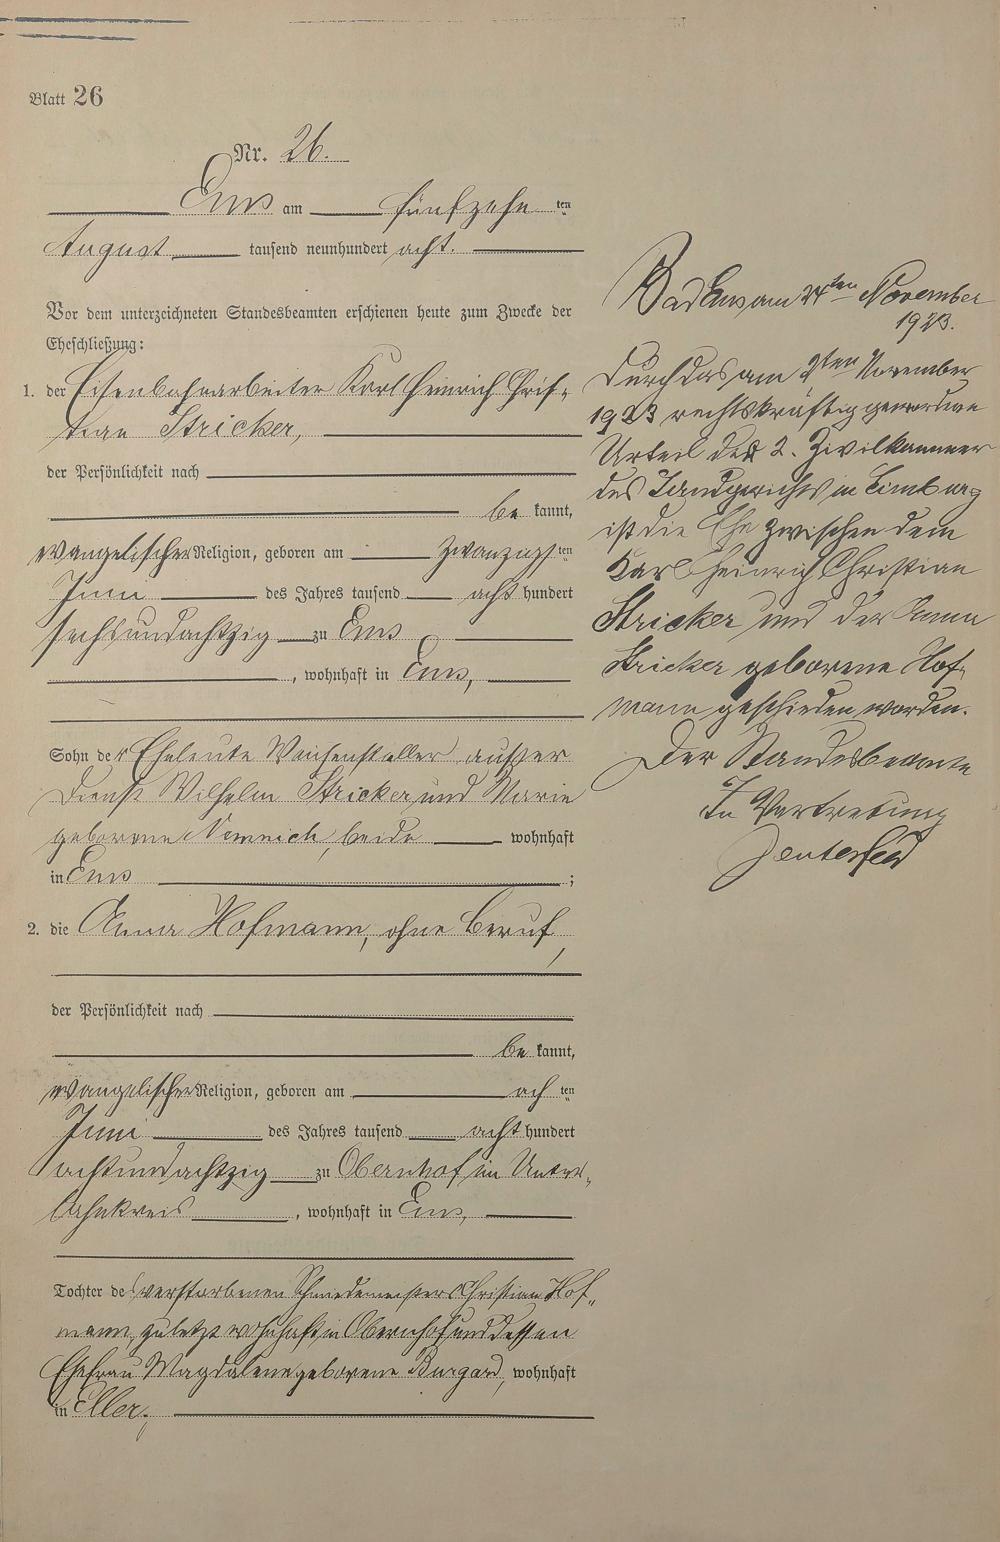 Blatt 26
Nr. 26.
Ems am fünfzehnten
August tausend neunhundert acht.
Vor dem unterzeichneten Standesbeamten erschienen heute zum Zwecke der
Eheschließung:
1. der Eisenbahnarbeiter Karl Heinrich Chris-
tian Stricker,
der Persönlichkeit nach
be kannt,
evangelischer Religion, geboren am zwanzigsten
Juni des Jahres tausend acht hundert
sechsundachtzig zu Ems
, wohnhaft in Ems,
Sohn der Eheleute Weichensteller außer
Dienst Wilhelm Stricker und Marie
geborene Nemnich, beide wohnhaft
in Ems ;
2. die Anna Hofmann, ohne Beruf,
der Persönlichkeit nach
be kannt,
evangelischer Religion, geboren am achten
Juni des Jahres tausend acht hundert
achtundachtzig zu Obernhof im Unter-
lahnkreis , wohnhaft in Ems,
Tochter des verstorbenen Schmiedemeisters Christian Hof-
mann, zuletzt wohnhaft in Obernhof und dessen
Ehefrau Magdalene geborene Burgard, wohnhaft
in Eller.
Bad Ems am ten November
1923.
Durch das am ten November
1923 rechtskräftig gewordene
Urteil der 2. Zivilkammer
des Landgerichts in Limburg
ist die Ehe zwischen dem
Karl Heinrich Christian
Stricker und der Anna
Stricker geborene Hof-
mann geschieden worden.
Der Standesbeamte
In Vertretung